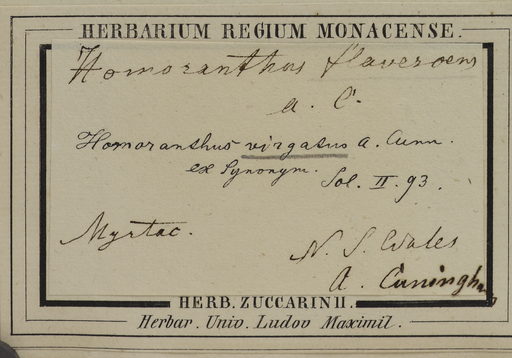 HERBARIUM REGIUM MONACENSE.
Homoranthus flaveroens
a. C.
Homoranthus virgatus A. Cunn.
ex Synonym.
Sol. II. 93.
Myrtac.
N. S. Wales
A. Cuningham
HERB. ZUCCARINII.
Herbar. Univ. Ludov Maximil.